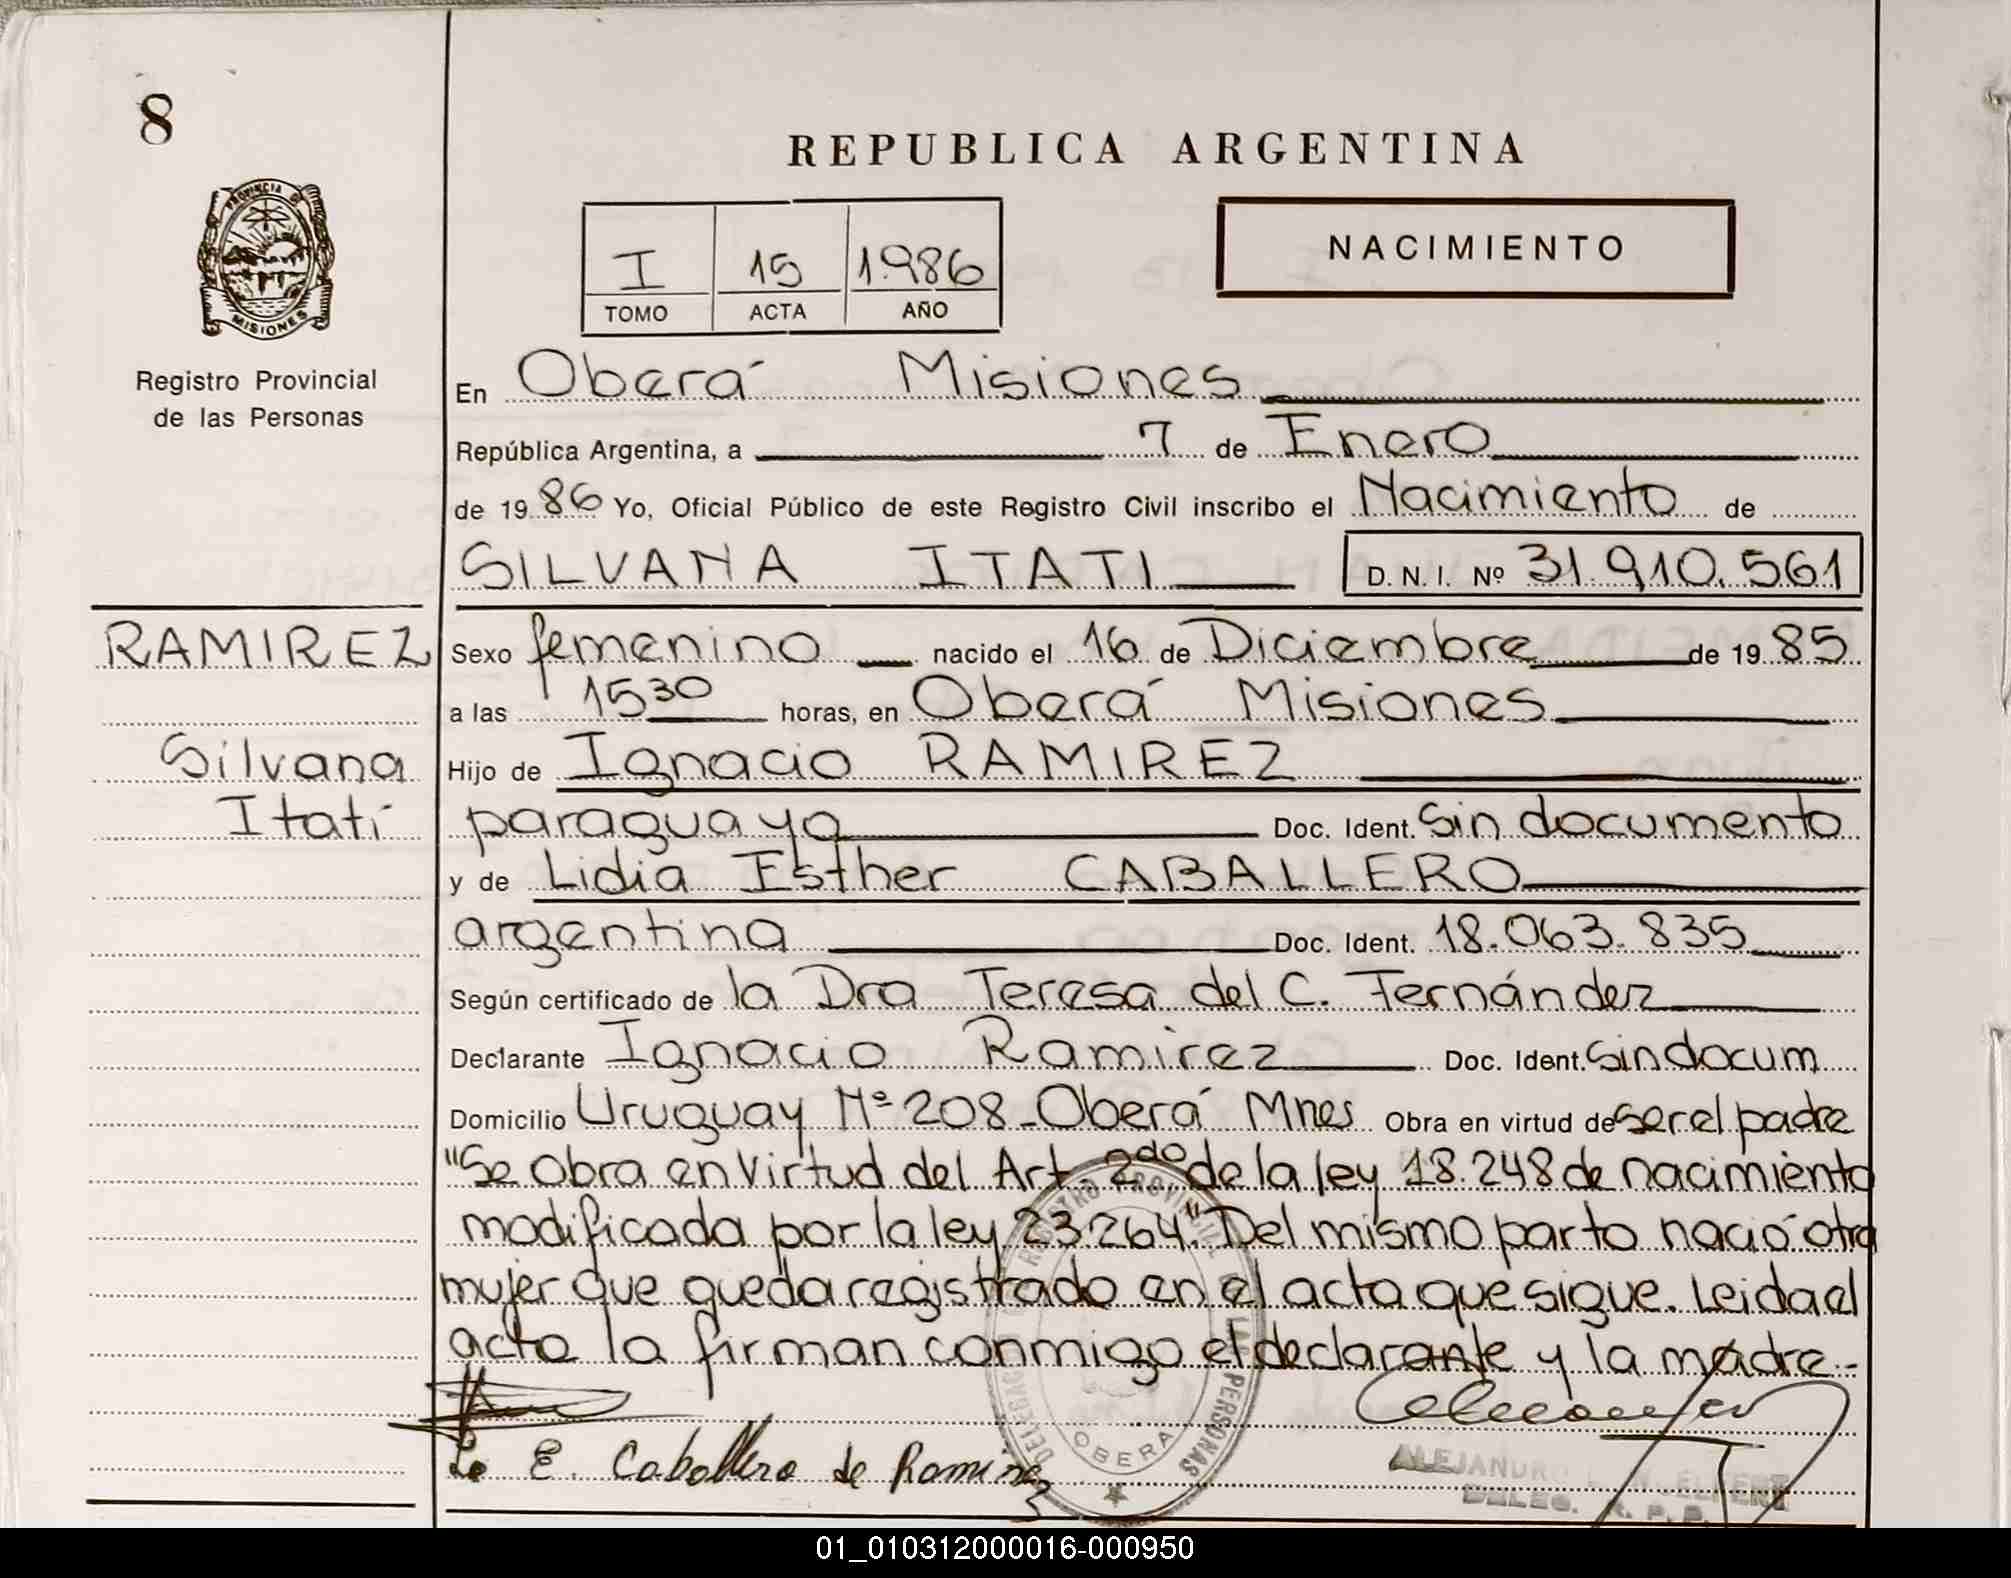 8
REPUBLICA ARGENTINA
PROVINCIA DE
MISIONES
Registro Provincial
de las Personas
I 15 1.986
TOMO ACTA AÑO
NACIMIENTO
En Oberá Misiones
República Argentina, a 7 de Enero
de 19 86 Yo, Oficial Público de este Registro Civil inscribo el Nacimiento de
SILVANA ITATI D. N. I. Nº 31.910.561
RAMIREZ
Silvana
Itatí
Sexo femenino nacido el 16 de Diciembre de 19 85
a las 15 30 horas, en Oberá Misiones
Hijo de Ignacio RAMIREZ
paraguayo Doc. Ident. Sin documento
y de Lidia Esther CABALLERO
argentina Doc. Ident. 18.063.835
Según certificado de la Dra Teresa del C. Fernández
Declarante Ignacio Ramirez Doc. Ident. Sin docum
Domicilio Uruguay Nº 208 - Oberá Mnes Obra en virtud de ser el padre
"Se obra en virtud del Art. 2do de la ley 18.248 de nacimiento
modificada por la ley 23.264". Del mismo parto nació otra
mujer que queda registrado en el acta que sigue. Leida el
acta la firman conmigo el declarante y la madre.-
E. Caballero de Ramirez
DELEGACION REGISTRO PROVINCIAL DE LAS PERSONAS
OBERA
ALEJANDRO
DELEG. R. P. P.
01_010312000016-000950